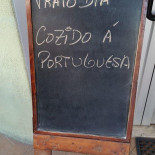 PRATO DIA
COZIDO Á
PORTUGUESA